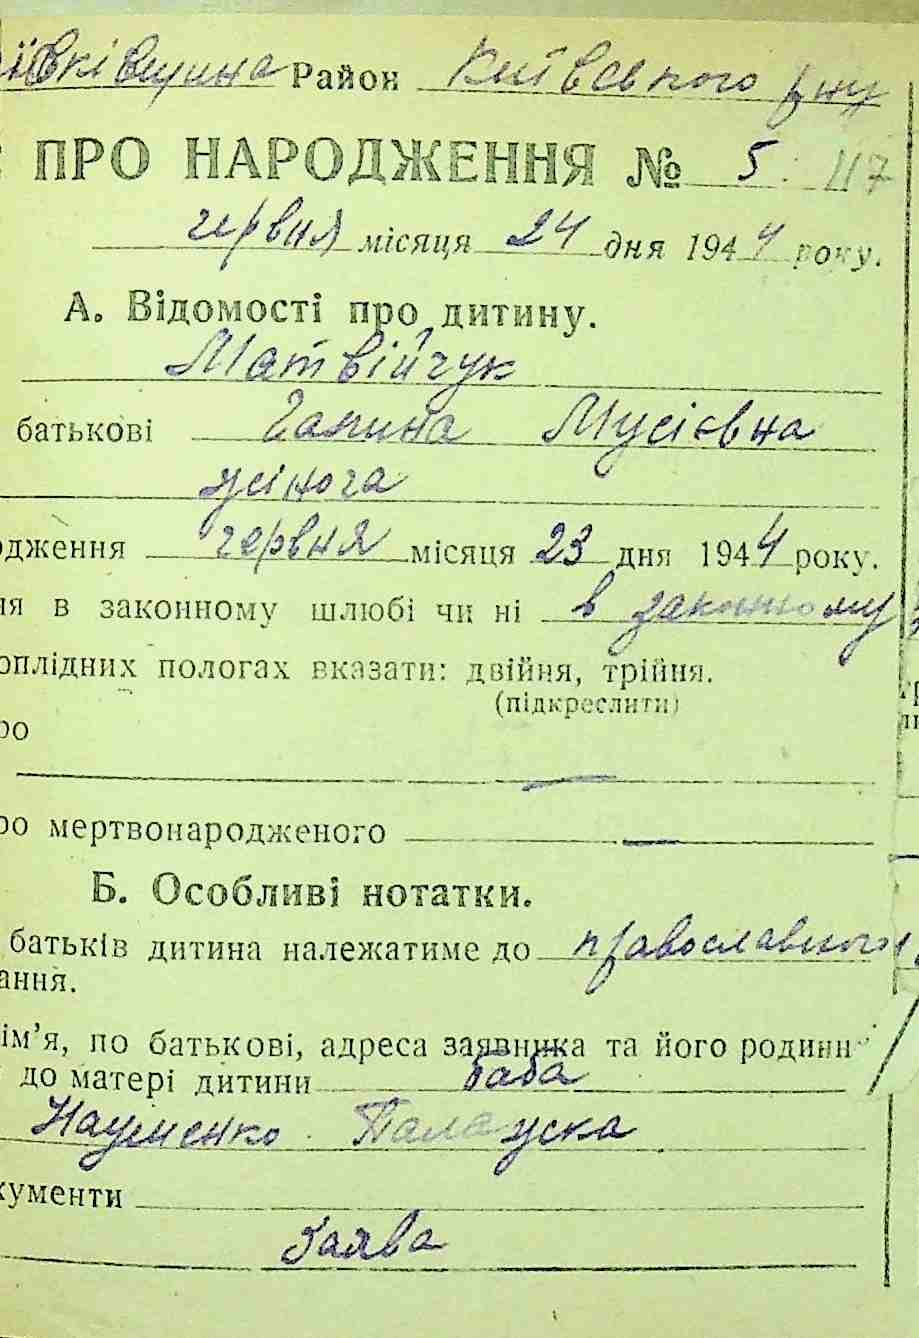 Район Київського р-ну
ПРО НАРОДЖЕННЯ № 5 117
червня місяця 24 дня 1944 року.
А. Відомості про дитину.
Матвійчук
батькові Галина Мусієвна
жіноча
одження червня місяця 23 дня 1944 року.
ня в законному шлюбі чи ні в законному
оплідних пологах вказати: двійня, трійня.
(підкреслити)
ро
ро мертвонародженого —
Б. Особливі нотатки.
батьків дитина належатиме до православного
ання.
ім’я, по батькові, адреса заявника та його родинн
до матері дитини баба
Науменко
кументи
Заява